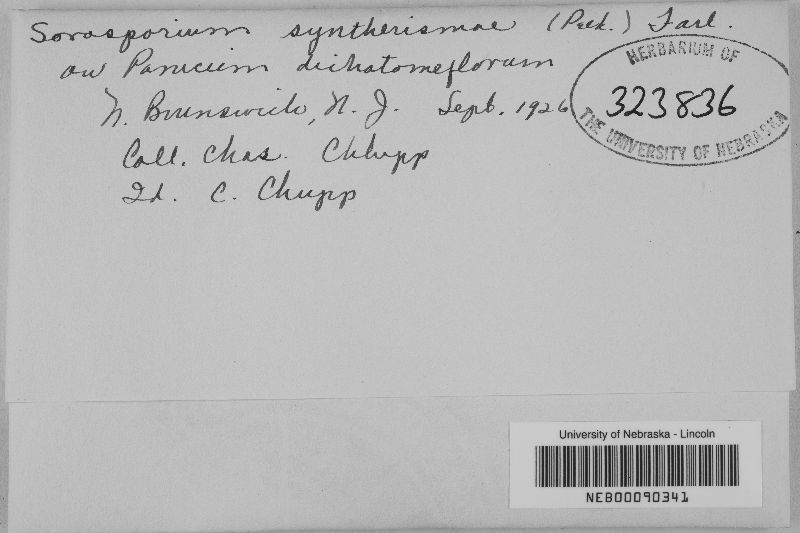 Sorosporium syntherismae (Peck.) Farl.
on Panicum dichotomeflorum
N. Brunswick, N. J. Sept. 1926
Coll. Chas. Chhupp
Id. C. Chupp
HERBARIUM OF
323836
THE UNIVERSITY OF NEBRASKA
University of Nebraska - Lincoln
NEB00090341